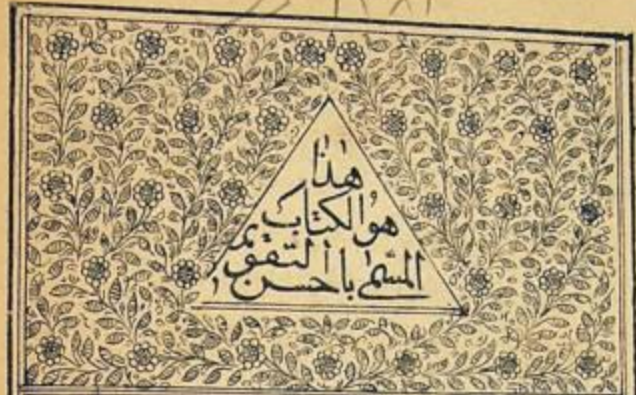 هذا
هو الكتاب
المسمى باحسن التقويم